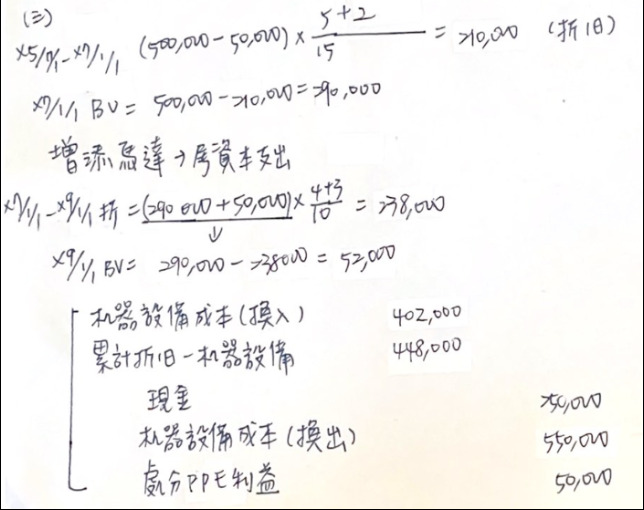 (三)
×5/1/1-×7/1/1 (500,000-50,000)× 5+2/15 = 210,000 (折旧)
×7/1/1 BV = 500,000-210,000=290,000
增添馬達→屬資本支出
×7/1/1-×9/1/1 折 =(290,000+50,000)× 4+3/10 = 238,000
×9/1/1 BV= 290,000-238000 = 52,000
机器設備成本(換入) 402,000
累計折旧-机器設備 448,000
現金 250,000
机器設備成本(換出) 550,000
處分PPE利益 50,000